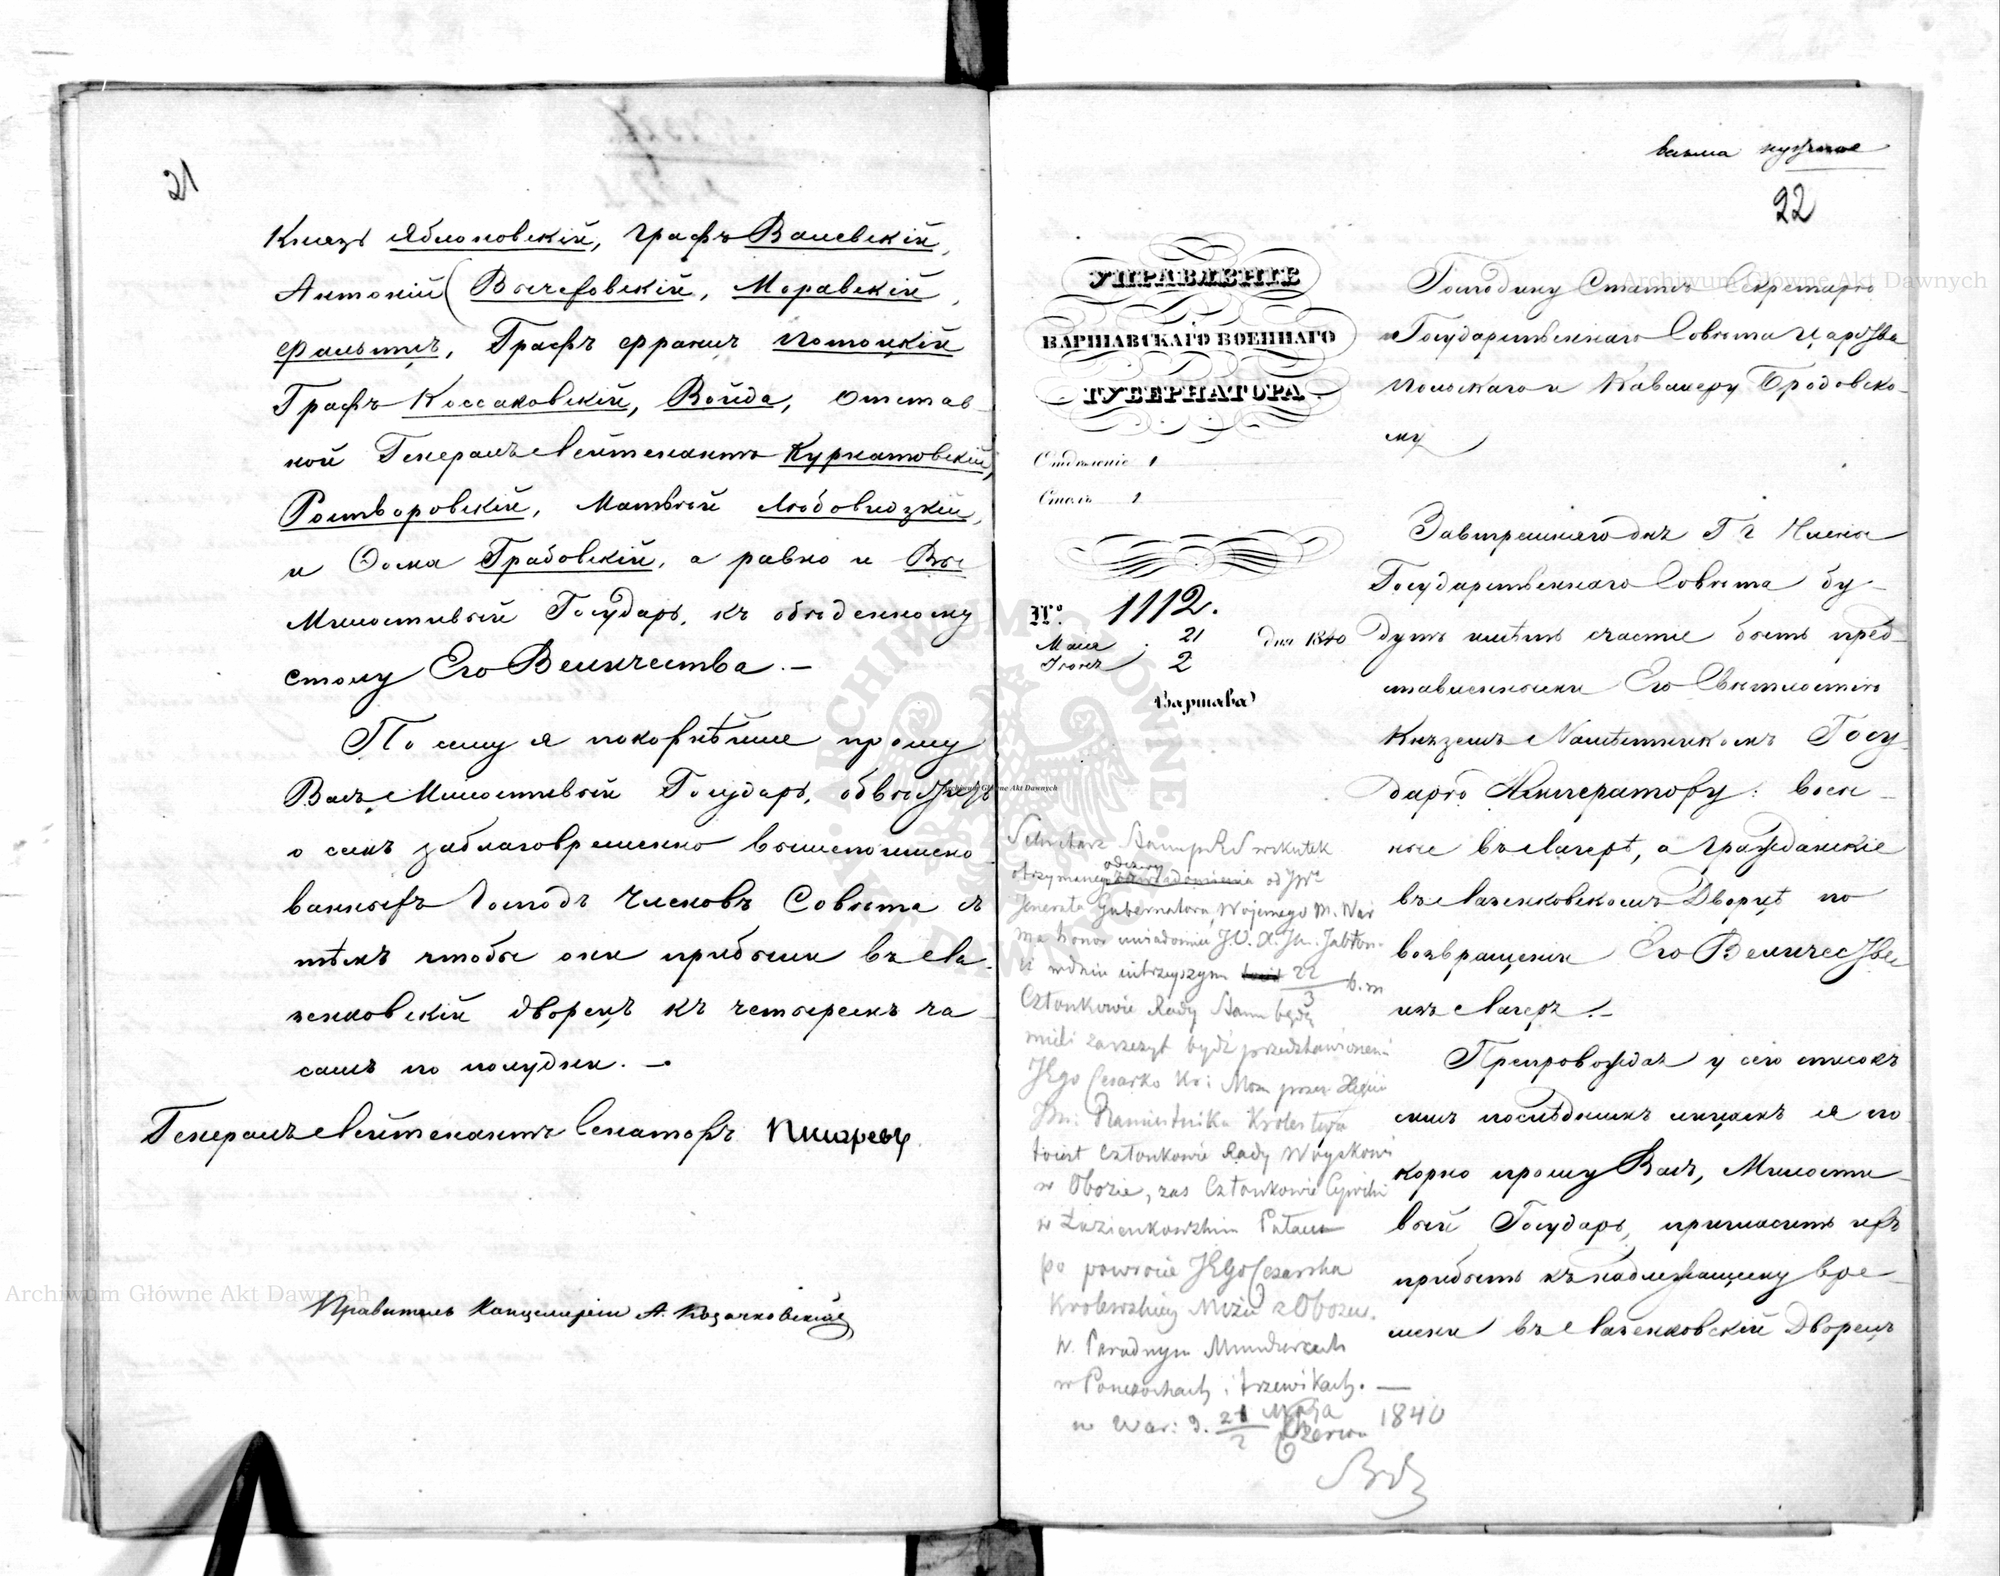 21
Князь Яблоновскій, Графъ Валевскій,
Антоній (Вычеховскій, Моравскій,
Фальтцъ, Графъ Францъ Потоцкій
Графъ Коссаковскій, Война, Отстав-
ной Генералъ Лейтенантъ Курнатовскій,
Ростворовскій, Матвѣй Любовидзкій,
и Ѳома Грабовскій, а равно и Вы
Милостивый Государь, къ обѣденному
столу Его Величества.—
По сему я покорнѣйше прошу
Васъ Милостивый Государь, объ
о семъ заблаговременно вышепоимено
ванныхъ Господъ Членовъ Совѣта съ
тѣмъ чтобы они прибыли въ Ла-
зенковскій дворецъ къ четыремъ ча-
самъ по полудни.—
Генералъ Лейтенантъ Сенаторъ Писаревъ.
Правитель Канцеляріи А. Козачковскій
весьма нужное
22
УПРАВЛЕНІЕ
ВАРШАВСКАГО ВОЕННАГО
ГУБЕРНАТОРА
Отдѣленіе 1
Столъ 1
№ 1112.
Мая 21 дня 1840
Іюня 2
Варшава
Господину Статсъ Секретарю
Государственнаго Совѣта Царства
Польскаго и Кавалеру Бродовско-
му
Завтрешняго дня Г Г Члены
Государственнаго Совѣта бу-
дутъ имѣть счастіе быть пред-
ставленными Его Свѣтлостію
Княземъ Намѣстникомъ Госу-
дарю Императору: воен-
ные въ Лагерѣ, а Гражданскіе
въ Лазенковскомъ Дворцѣ по
возвращеніи Его Величества
изъ Лагеря.—
Препровождая у сего списокъ
симъ послѣднимъ лицамъ я по
корно прошу Васъ, Милости-
вый Государь, пригласить ихъ
прибыть къ надлежащему вре-
мени въ Лазенковскій Дворецъ
Sekretarz Stanu wskutek
otrzymanej odezwy od JW
Jenerała Gubernatora Wojennego M. War
ma honor uwiadomić J.O. X. Jabłon-
w dniu jutrzejszym 22/3 b.m
Członkowie Rady Stanu będą
mieli zaszczyt bydź przedstawieni
JEgo Cesarsko Kr: Mości przez Xięcia
Jm: Namiestnika Królestwa
to iest Członkowie Rady Woyskowi
w Obozie, zaś Członkowie Cywilni
w Łazienkowskim Pałacu
po powrocie JEgo Cesarsko
Królewskiey Mości z Obozu.
w Paradnym Mundurach
w Ponczochach i trzewikach.—
w War: d. 21 Maja 1840
2 Czerwca